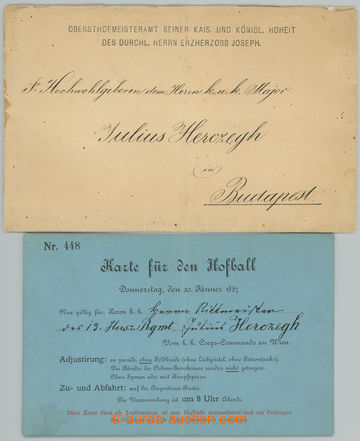 OBERSTHOFMEISTERAMT SEINER KAIS. UND KÖNIGL. HOHEIT
DES DURCHL. HERRN ERZHERZOGS JOSEPH.
Sr Hochwohlgeboren dem Herrn k. u. k. Major
Julius Herczegh
in
Budapest
Nr. 448
Karte für den Hofball
Donnerstag, den 20. Jänner 1887
Nur giltig für Herrn k. k. Herrn Rittmeister
des 13. Husz. Rgmt. Julius Herczegh
Vom k. k. Corps-Commando zu Wien.
Adjustirung: en parade, ohne Feldbinde (ohne Leibgürtel, ohne Patrontasche).
Die Bänder der Ordens-Grosskreuze werden nicht getragen.
Ohne Sporen oder mit Knopfsporen.
Zu- und Abfahrt: auf der Augustiner-Bastei.
Die Versammlung ist um 8 Uhr Abends.
Diese Karte dient als Legitimation, ist zum Hofballe mitzunehmen und auf Verlangen
© aukro auction